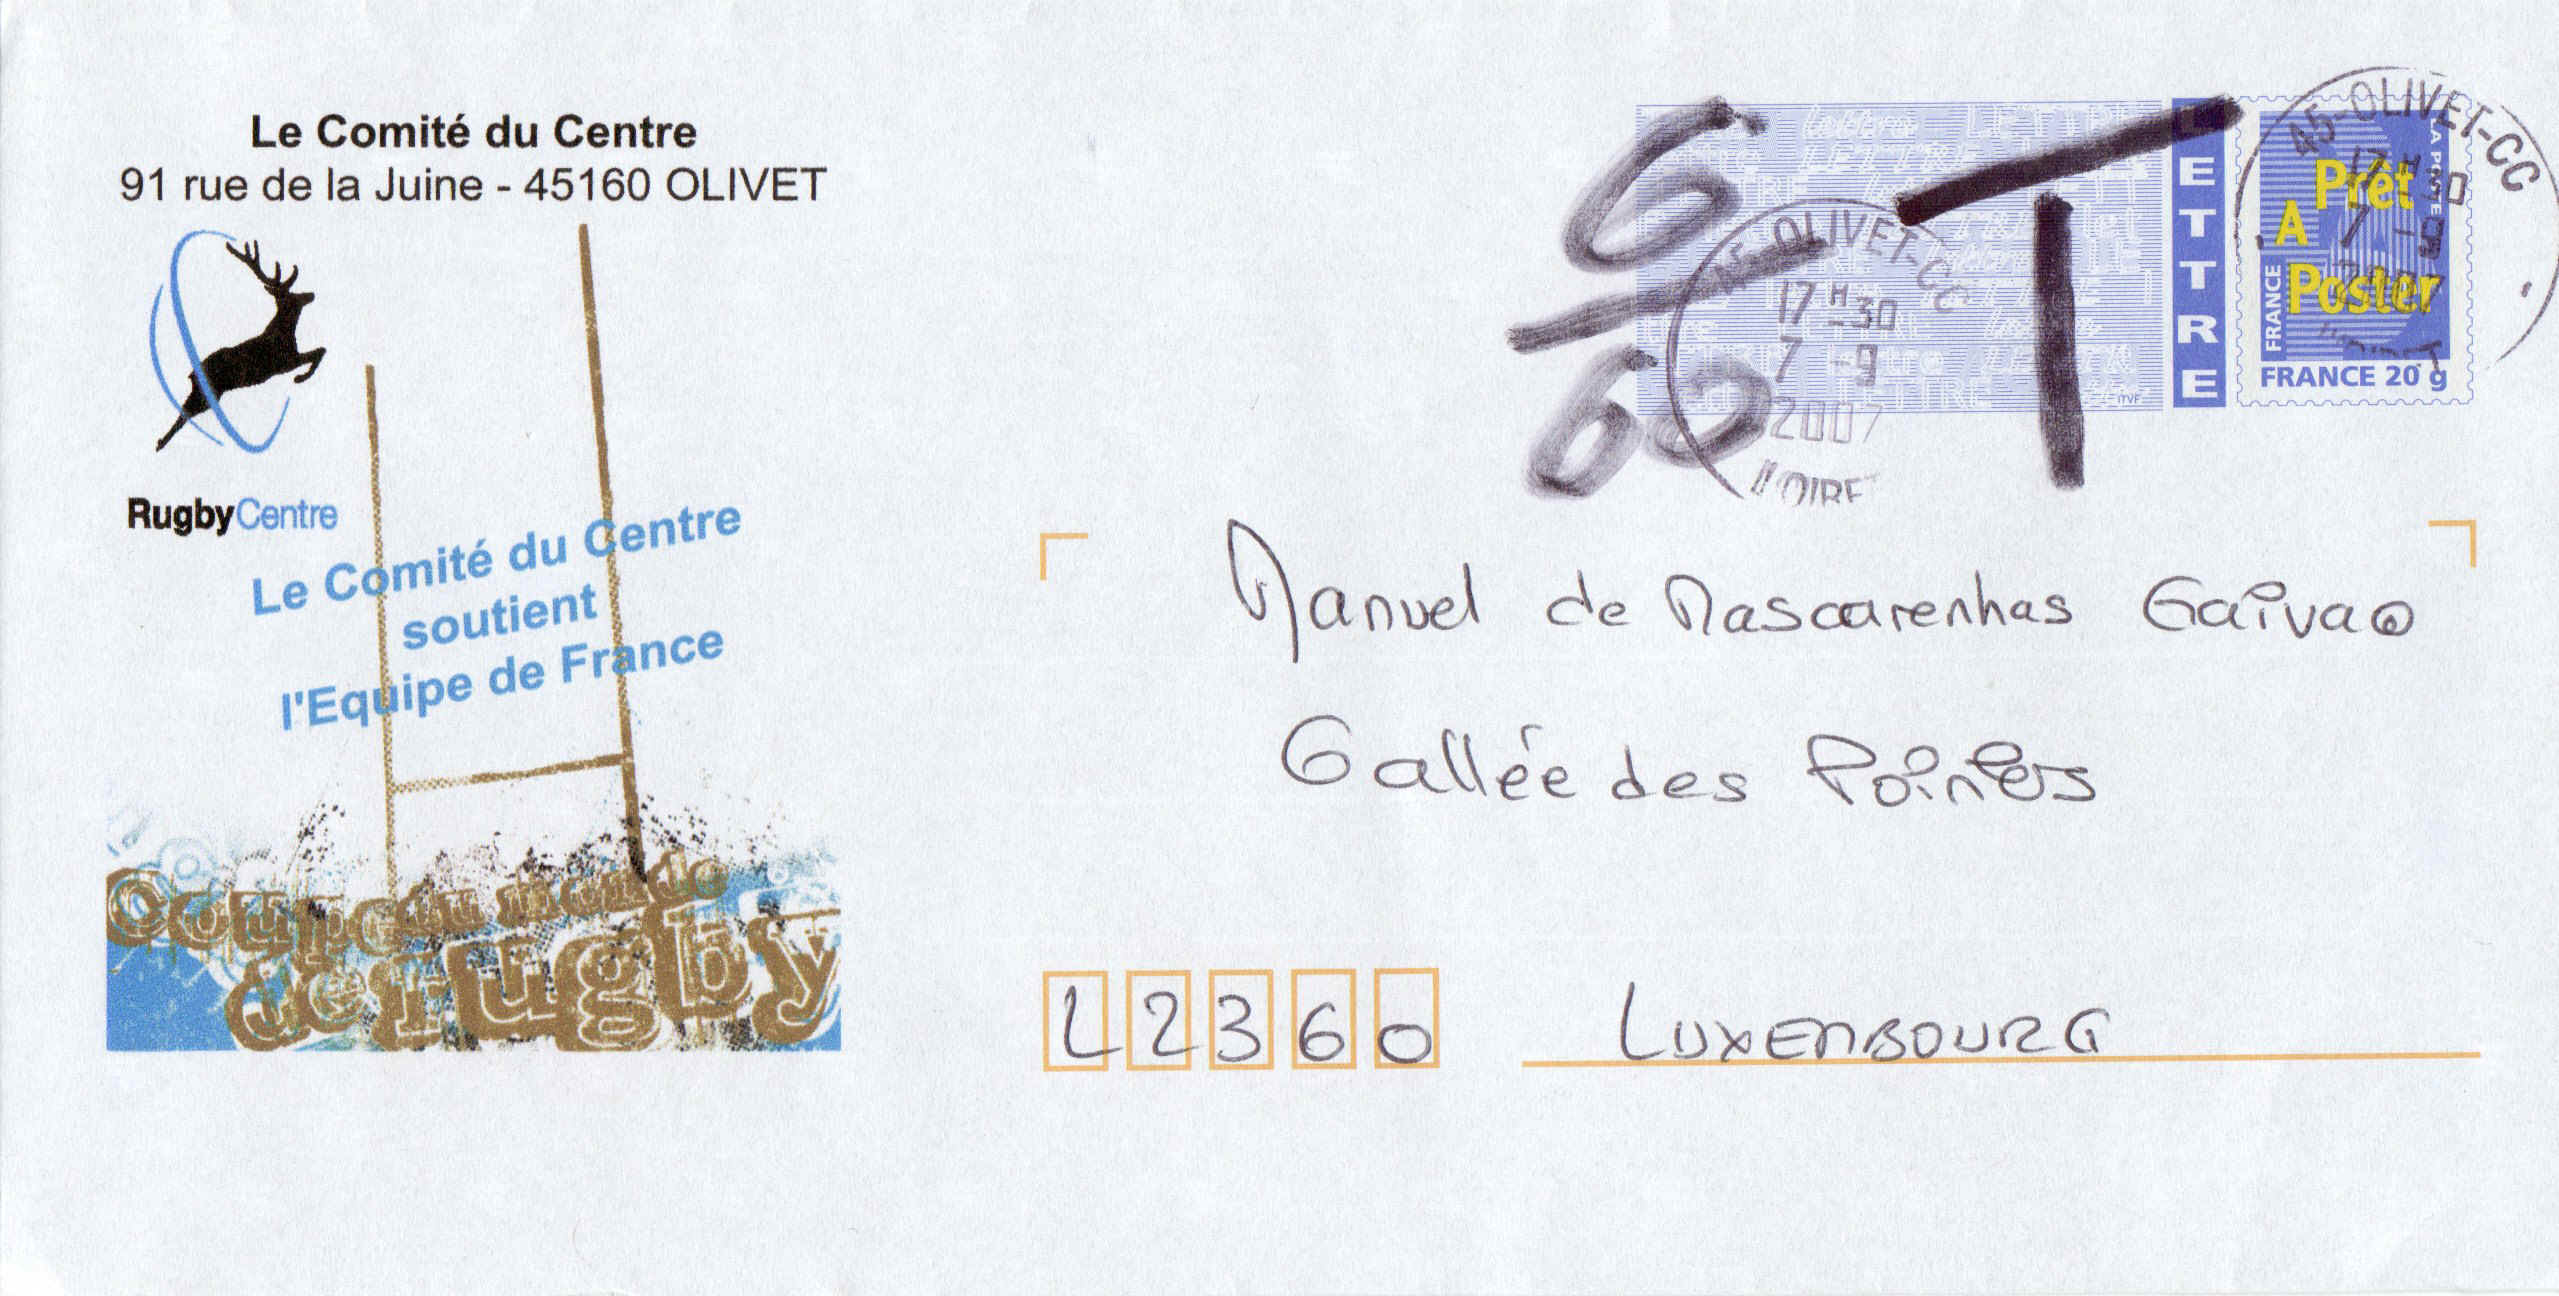 Le Comité du Centre
91 rue de la Juine - 45160 OLIVET
RugbyCentre
Le Comité du Centre
soutient
l'Equipe de France
Coupe du monde
de rugby
6
60
T
45-OLIVET-CC
17H-30
7-9
2007
LOIRET
LETTRE
Prêt
A
Poster
LA POSTE
FRANCE
FRANCE 20 g
ITVF
45-OLIVET-CC
17H-30
7-9
2007
Manuel de Mascarenhas Gaivao
6 allée des Poiriers
L2360 LUXEMBOURG